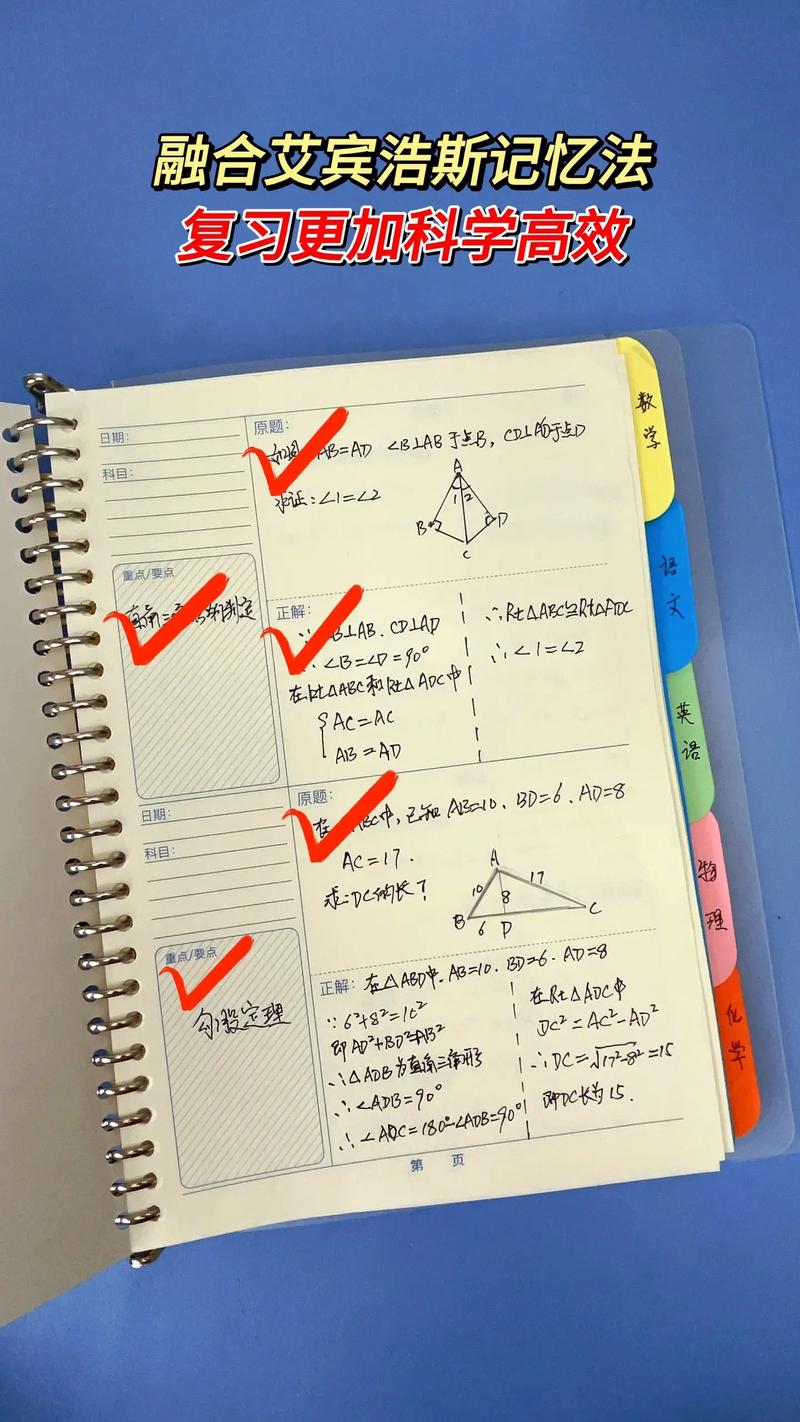 融合艾宾浩斯记忆法
复习更加科学高效
日期:
科目:
原题:
AB=AD ∠B⊥AB于点B, CD⊥AD于点D
求证:∠1=∠2
A
1 2
B
D
C
重点/要点
正解:
B⊥AB、CD⊥AD
∴∠B=∠D=90°
在Rt△ABC和Rt△ADC中
AC=AC
AB=AD
∴Rt△ABC≌Rt△ADC
∴∠1=∠2
日期:
科目:
原题:
在 ABC中,已知 AB=10、BD=6、AD=8
AC=17.
求:DC的长?
A
10
17
8
B
6
D
C
重点/要点
勾股定理
正解:
在△ABD中、AB=10、BD=6、AD=8
∵6²+8²=10²
即AD²+BD²=AB²
∴△ADB为直角三角形
∴∠ADB=90°
∴∠ADC=180°-∠ADB=90°
在Rt△ADC中
DC²=AC²-AD²
∴DC=√17²-8²=15
即DC长为15.
第 页
数学
语文
英语
物理
化学